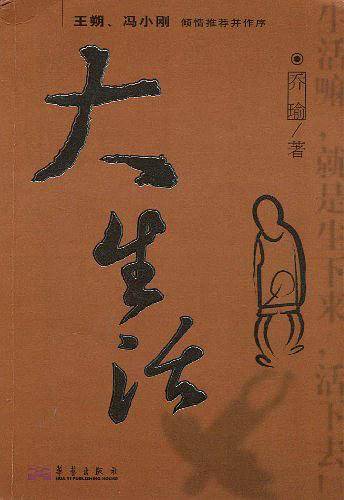 王朔、冯小刚 倾情推荐并作序
大生活
乔瑜/著
生活嘛,就是生下来,活下去!
华艺出版社
HUA YI PUBLISHING HOUSE